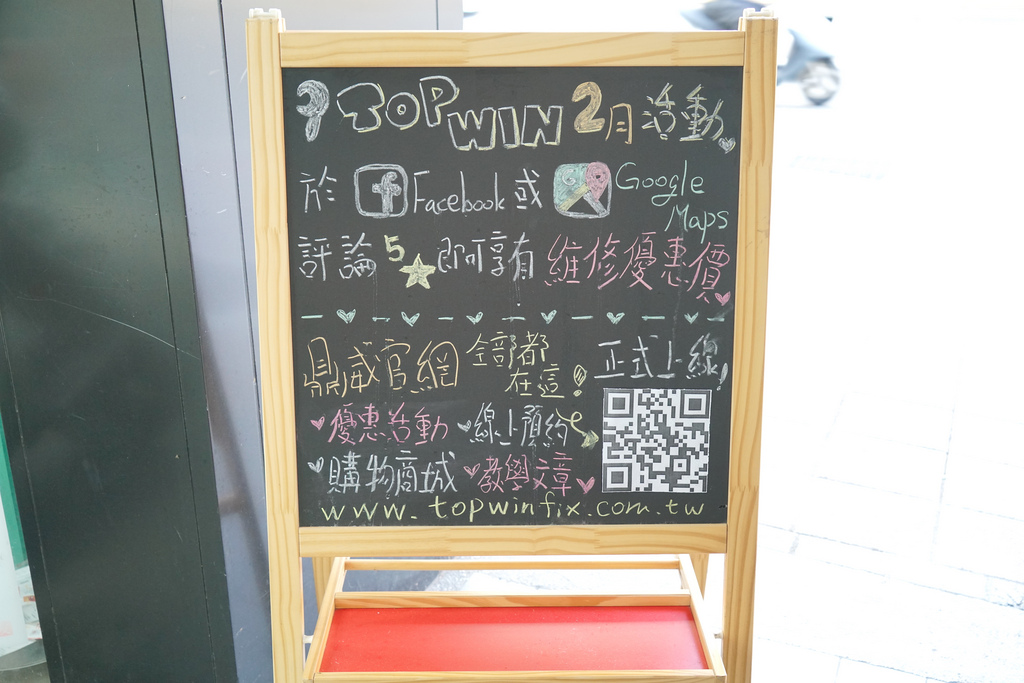 TOP WIN 2月活動
於 Facebook 或 Google Maps
評論5 即可享有 維修優惠價
鼎威官網 全部都在這! 正式上線!
優惠活動 線上預約
購物商城 教學文章
www.topwinfix.com.tw